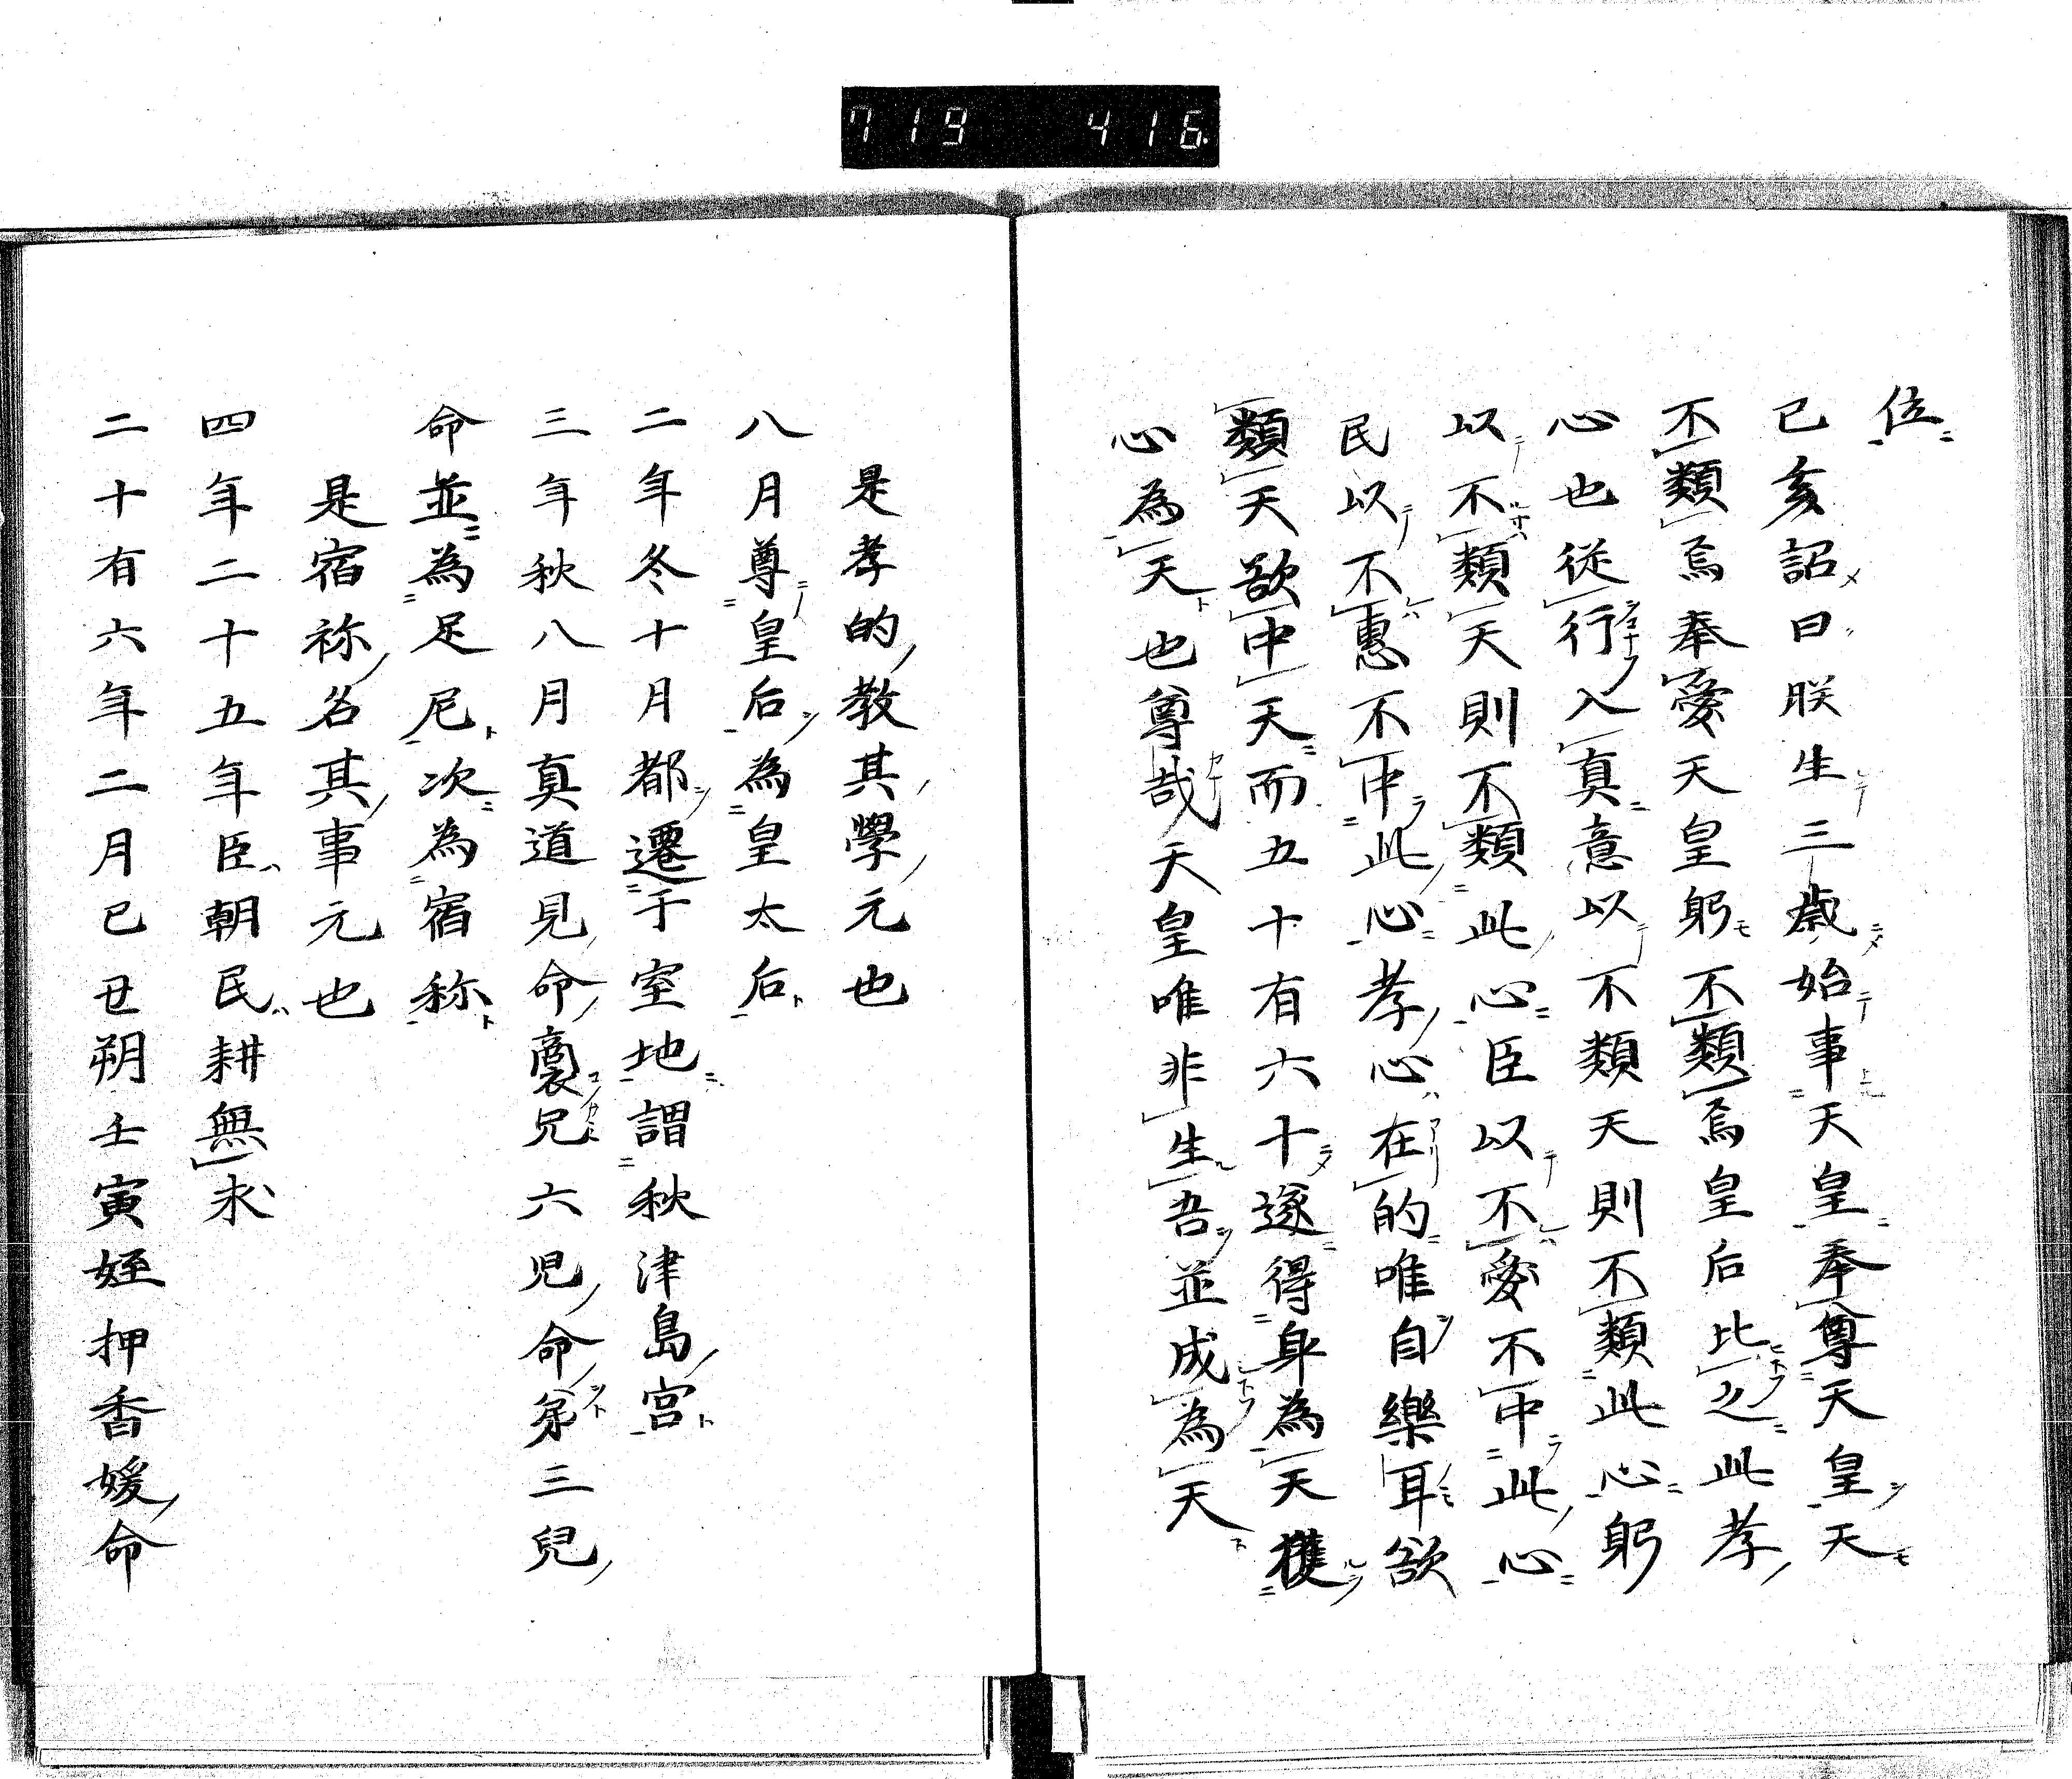 719 416
位
已亥詔曰朕生三歳始事天皇奉尊天皇天
不類焉奉愛天皇躬不類焉皇后比之此孝
心也從行入真意以不類天則不類此心躬
以不類天則不類此心臣以不愛不中此心
民以不惠不中此心孝心在的唯自樂耳欲
類天欲中天而五十有六十遂得身為天
心為天也尊哉天皇唯非生吾並成為天
是孝的教其學元也
八月尊皇后為皇太后
二年冬十月都遷于室地謂秋津島宮
三年秋八月真道見命裔兄六児命弟三兒
命並為足尼次為宿祢
是宿祢名其事元也
四年二十五年臣朝民耕無求
二十有六年二月已丑朔壬寅姪押香媛命